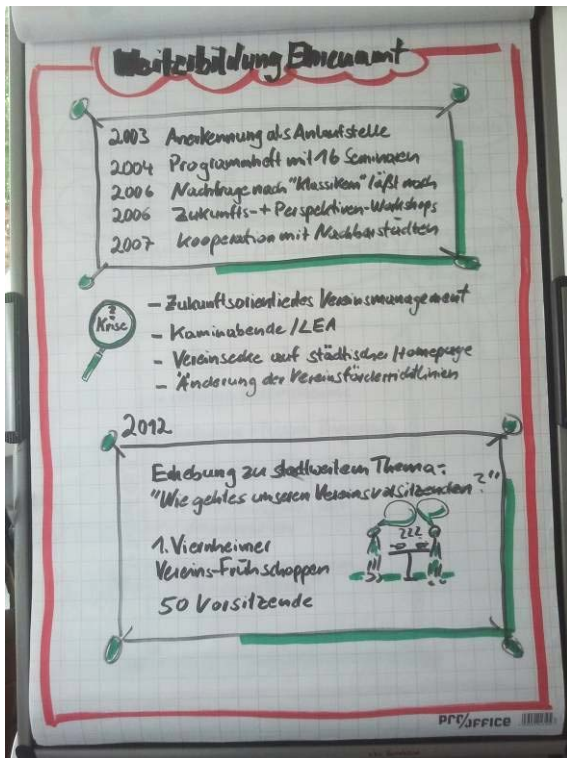 Weiterbildung Ehrenamt
2003 Anerkennung als Anlaufstelle
2004 Programmheft mit 16 Seminaren
2006 Nachfrage nach "Klassikern" läßt nach
2006 Zukunfts- + Perspektiven-Workshops
2007 Kooperation mit Nachbarstädten
? Krise
- Zukunftsorientiertes Vereinsmanagement
- Kaminabende / LEA
- Vereinsecke auf städtischer Homepage
- Änderung der Vereinsförderrichtlinien
2012
Erhebung zu stadtweitem Thema:
"Wie geht es unseren Vereinsvorsitzenden?"
1. Viernheimer
Vereins-Frühschoppen
50 Vorsitzende
???
PRO/OFFICE